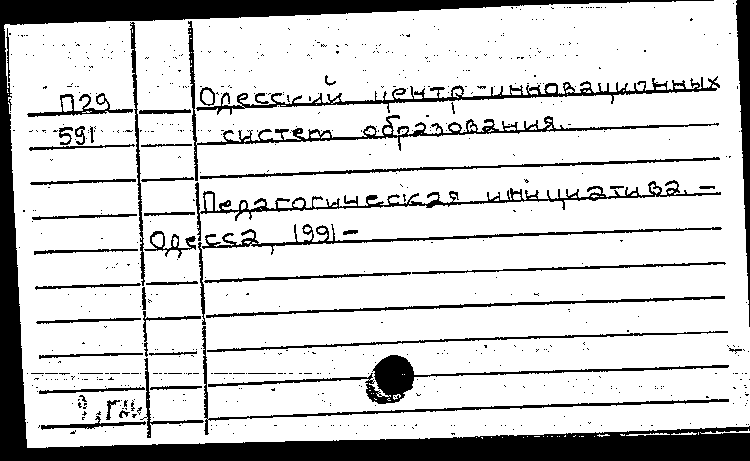 П29
591
Одесский центр инновационных
систем образования.
Педагогическая инициатива. –
Одесса, 1991 –